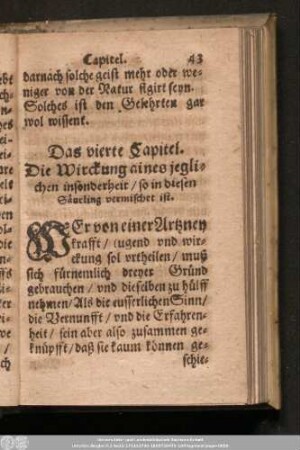 Capitel. 43
darnach solche geist mehr oder we-
niger von der Natur figirt seyn.
Solches ist den Gelehrten gar
wol wissent.
Das vierte Capitel.
Die Wirckung aines jegli-
chen insonderheit / so in diesen
Säurling vermischet ist.
WEr von einer Artzney
krafft / tugend vnd wir-
ckung sol vrtheilen / muß
sich fürnemlich dreyer Gründ
gebrauchen / vnd dieselben zu hülff
nehmen / Als die eusserlichen Sinn /
die Vernunfft / vnd die Erfahren-
heit / sein aber also zusammen ge-
knüpfft / daß sie kaum können ge-
schie-